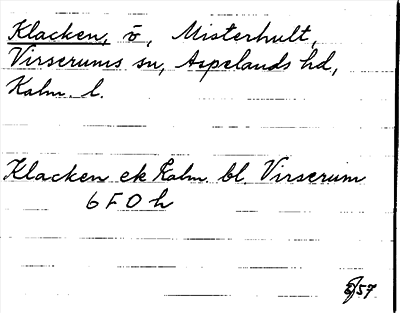 Klacken, ö, Misterhult,
Virserums sn, Aspelands hd,
Kalm. l.
Klacken ek Kalm. bl. Virserum
6 F 0 h
57